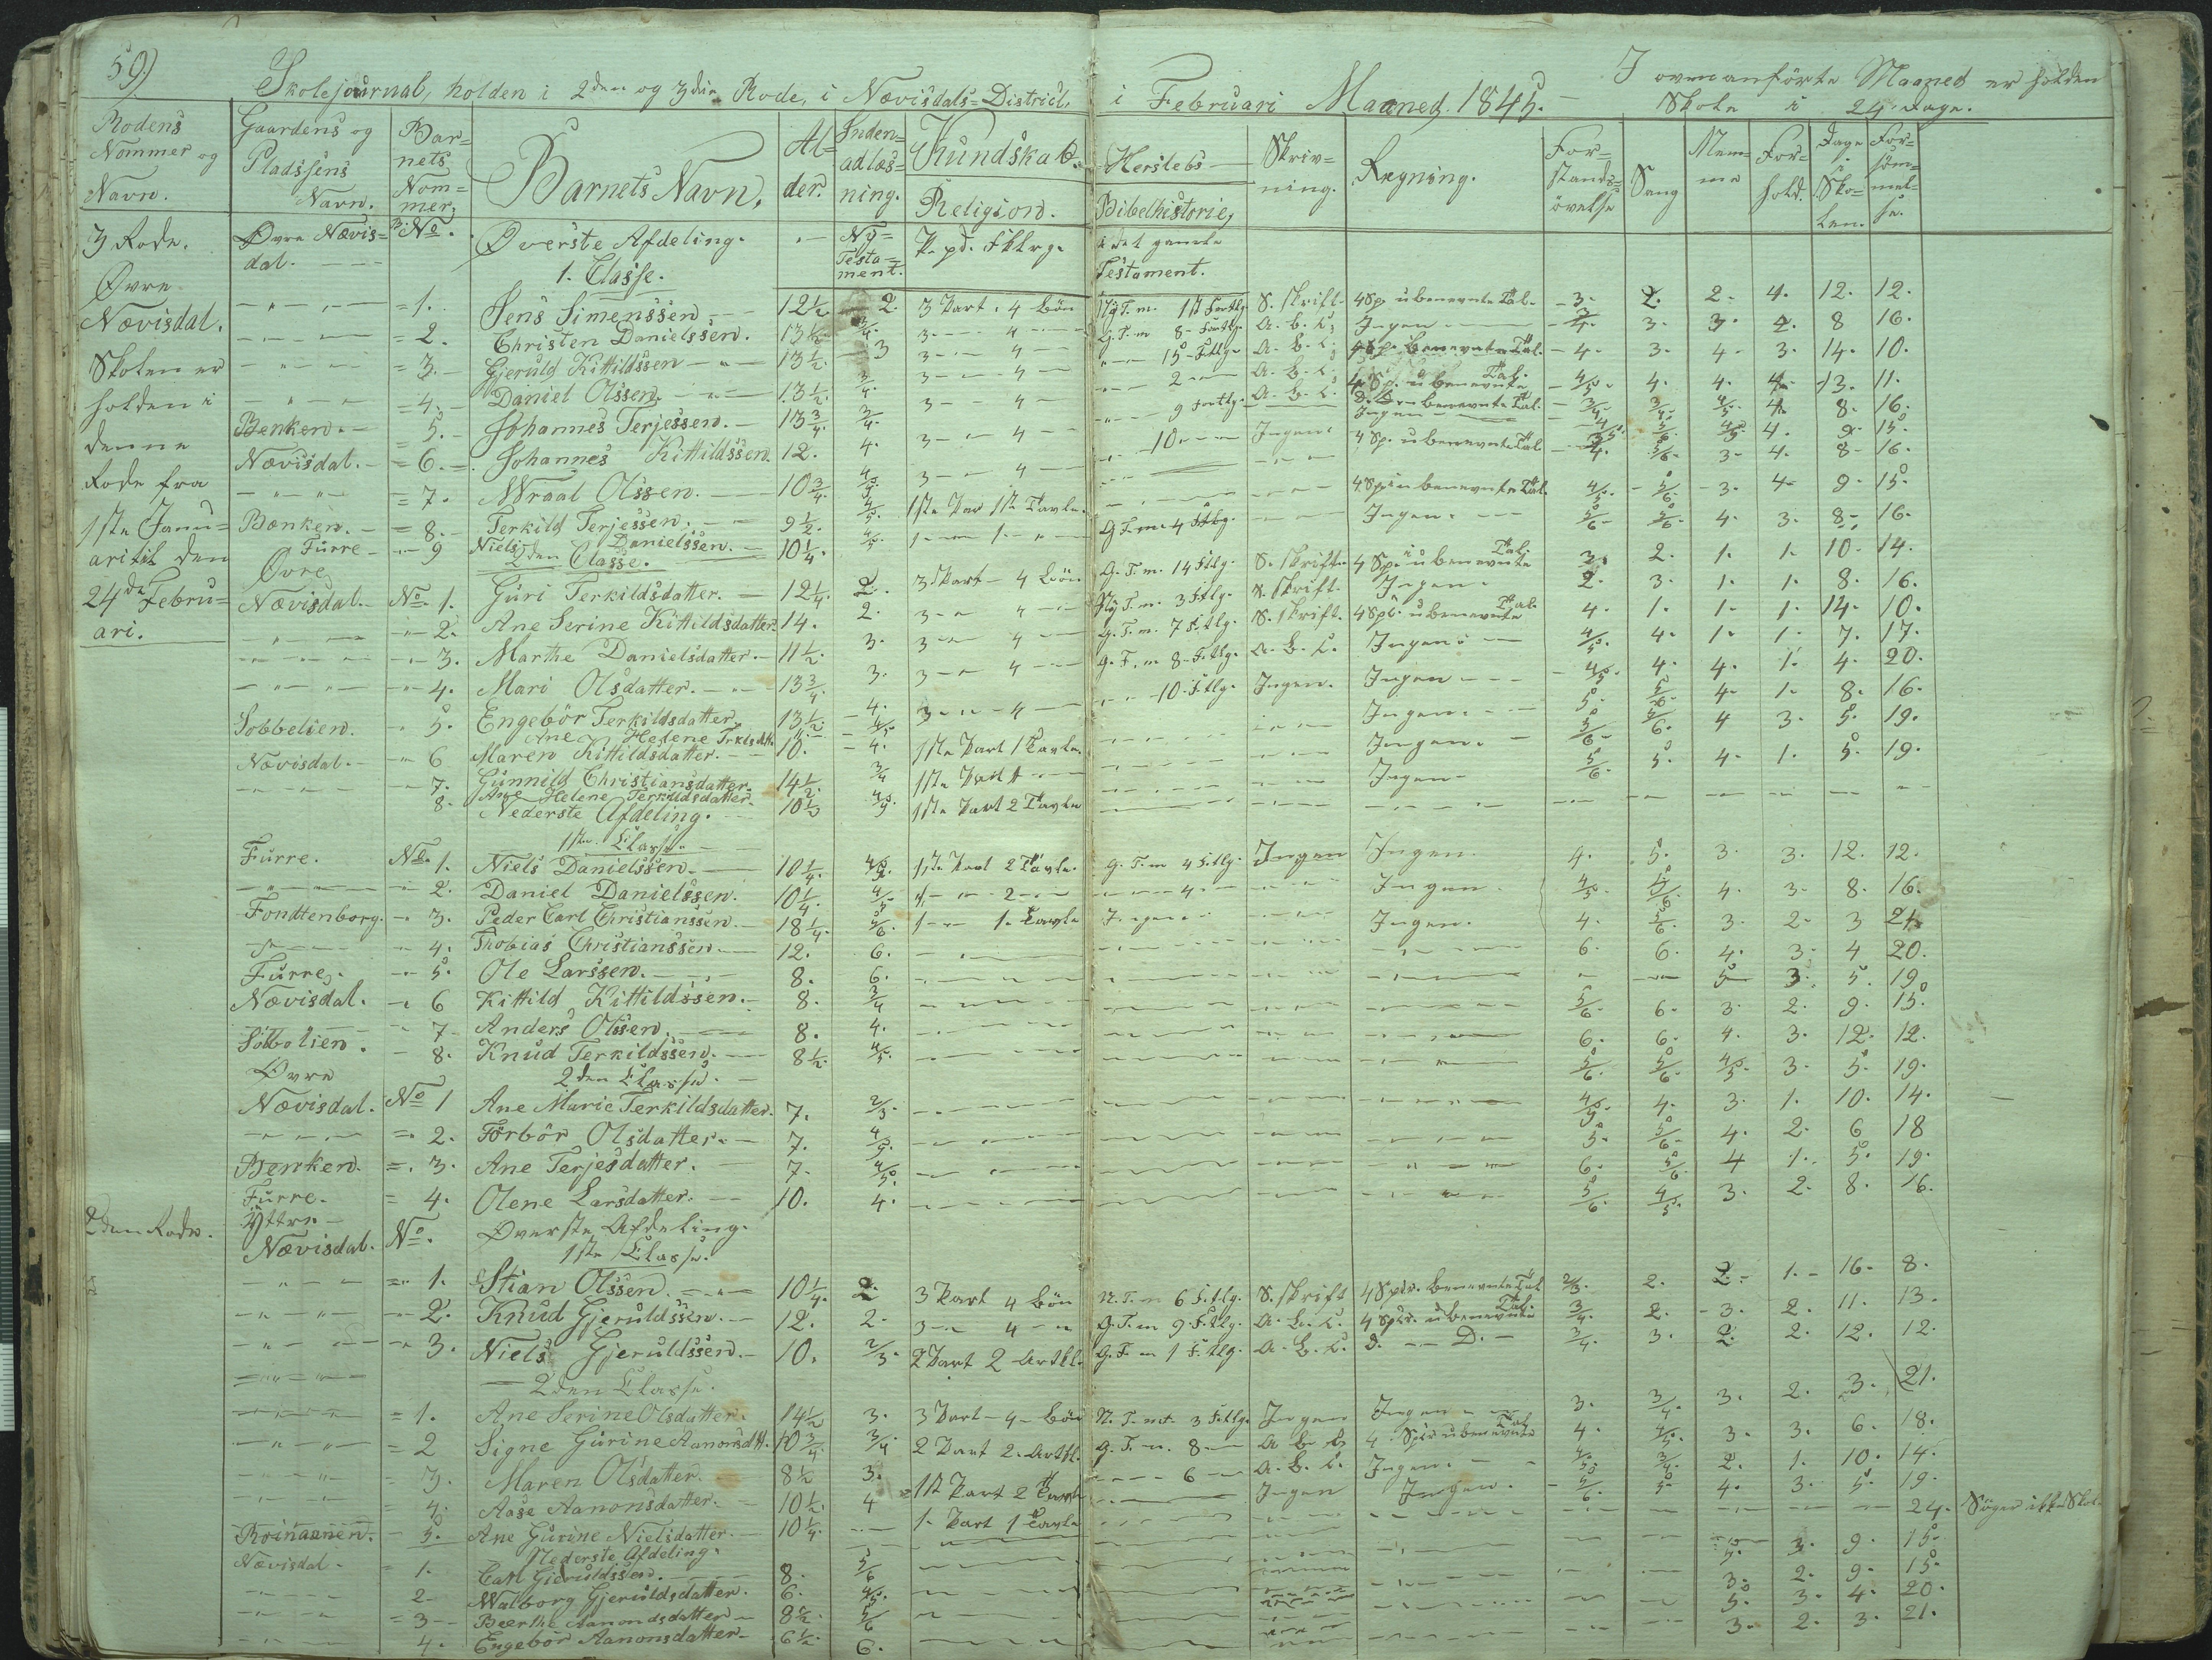 59)
Skolejournal, holden i 2den og 3die Rode, i Nævisdals=District, i Februari Maaned. 1845. –
I ovenanførte Maaned er holden
Skole i 24 Dage.
Rodens Nommer og Navn.
Gaardens og Pladssens Navn.
Barnets Nommer,
Barnets Navn.
Alder.
Indenadlæsning.
Kundskab.
Religion.
Herslebs
Bibelhistorie,
Skrivning.
Regning.
Forstandsøvelse
Sang
Memme
Forhold.
Dage i Skolen.
Forsømmelse.
3 Rode.
Øvre
Nævisdal.
Skolen er
holden i
denne
Rode fra
1ste Janu=
ari til den
24de Febru=
ari.
Øvre Nævis=
dal.
No.
Øverste Afdeling.
1. Classe.
Ny=
Testa=
ment.
det gamle
Testament.
1. Jens Simenssen 12½ 2. 3 Part. 4 Bøn S. Skrift. 4 Sp. ubenevnte Tal. 3. 2. 2. 4. 12. 12.
2. Christen Danielssen. 13½ 3/4. 3. 4 A. B. C. Ingen 3. 3. 4. 8 16.
3. Gjeruld Kittildssen 13½. 3 3 4 A. B. C. 4 Sp. benevnte Tal. 4. 3. 4. 3. 14. 10.
4. Daniel Olssen. 13½. 3/4 3 4 A. B. C. 4 Sp. ubenevnte Tal. 4/5. 4. 4. 4. 13. 11.
Benken. 5. Johannes Terjessen. 13¾. 3/4. 3 4 A. B. C. 8. 16.
Nævisdal. 6. Johannes Kittildssen. 12. 4. 3 4 10. Ingen. 4. 9. 15.
7. Wraal Olssen. 10¾. 4/5. 3 4 4 Sp. ubenevnte Tal 4. 5/6. 3. 4. 8. 16.
Bænken. 8. Terkild Terjessen. 9½. 4/5. 1ste Part 1ste Tavle. 4 Sp. ubenevnte Tal. 4/5. 5/6. 3. 4. 9. 15.
Furre 9 Niels Danielssen. 10¼. 4/5. G. T. m. 4 Ftlg. Ingen. 5/6. 5/6. 4. 3. 8. 16.
2den Classe.
Øvre
Nævisdal. No. 1. Guri Terkildsdatter. 12¼. 2. 3 Part 4 Bøn G. T. m. 14 Ftlg. S. Skrift. 4 Sp. i ubenevnte Tal. 3. 2. 1. 1. 10. 14.
2. Ane Serine Kittildsdatter. 14. 2. 3 4 Ny T. m. 3 Ftlg. S. Skrift. Ingen. 2. 3. 1. 1. 8. 16.
3. Marthe Danielsdatter. 11½. 3. 3 4 G. T. m. 7 Ftlg. S. Skrift. 4 Sp. ubenevnte Tal. 4. 1. 1. 1. 14. 10.
4. Mari Olsdatter. 13¾. 3. 3 4 G. T. m 8 Ftlg. A. B. C. Ingen. 4/5. 4. 1. 1. 7. 17.
Sobbelien. 5. Engebör Terkildsdatter. 13½. 4. 3 4 10 Ftlg. Ingen. Ingen 4/5. 4. 4. 1. 4. 20.
Ane Helene Trkldsdtt. 4/5.
Nævisdal. 6 Maren Kittildsdatter. 10. 4. 1ste Part 1 Tavle. Ingen. 5. 5/6. 4. 1. 8. 16.
7. Gunnild Christiansdatter. 14½. 3/4 1ste Part Ingen. 5/6. 6. 4 3. 5. 19.
8. Ane Helene Terkildsdatter. 10½ 4/5. 1ste Part 2 Tavle Ingen 5/6. 5. 4. 1. 5. 19.
Nederste Afdeling.
1ste Classe.
Furre. No. 1. Niels Danielssen. 10¼. 4/5. 1ste Part 2 Tavle. G. T. m 4 Ftlg. Ingen Ingen. 4. 5. 3. 3. 12. 12.
2. Daniel Danielssen. 10¼. 4/5. 2 4. Ingen. 4/5. 5/6. 4. 3. 8. 16.
Fondtenborg. 3. Peder Carl Christianssen. 18¼. 5/6. 1 1. Tavle Ingen Ingen. 4. 5/6. 3. 2. 3 21.
4. Thobias Christianssen. 12. 6. 6. 6. 4. 3. 4 20.
Furre. 5. Ole Larssen. 8. 6. 5 3. 5. 19.
Nævisdal. 6 Kittild Kittildssen. 8. 3/4 5/6. 6. 3. 2. 9. 15.
7 Anders Olssen. 8. 4. 6. 6. 4. 3. 12. 12.
Sobbolien. 8. Knud Terkildssen. 8½. 4/5. 5/6. 5/6. 4/5. 3. 5. 19.
2den Classe.
Øvre
Nævisdal. No 1 Ane Marie Terkildsdatter. 7. 2/3. 4/5. 4. 3. 1. 10. 14.
2. Torbör Olsdatter. 7. 4/5. 5. 5/6. 4. 2. 6 18
Benken. 3. Ane Terjesdatter. 7. 4/5. 6. 5/6. 4 1. 5. 19.
Furre. 4. Olene Larsdatter. 10. 4. 5/6. 4/5. 3. 2. 8. 16.
2den Rode.
Yttre
Nævisdal. No.
Øverste Afdeling.
1ste Classe.
1. Stian Olssen. 10¼. 2 3 Part 4 Bøn N. T. m 6 Ftlg. S. Skrift 4 Spr. benevnte Tal 2/3. 2. 2. 1. 16. 8.
2. Knud Gjeruldssen. 12. 2. 3 4 G. T. m 9 Ftlg. A. B. C. 4 Spr. ubenevnte Tal. 3/4. 2. 3. 2. 11. 13.
3. Niels Gjeruldssen. 10. 2/3. 2 Part 2 Artkl. G. T. m 1 Ftlg. A. B. C. D. D. 3/4. 3. 2. 2. 12. 12.
2den Classe.
1. Ane Serine Olsdatter. 14½ 3. 3 Part 4 Bøn N. T. m. 3 Ftlg. Ingen Ingen 3. 3/4. 3. 2. 3. 21.
2 Signe Gurine Aanonsdtt. 10¾. 3/4 2 Part 2. Artkl. G. T. m. 8 A. B. C. 4 Spr. ubenevnte Tal 4. 4/5. 3. 3. 6. 18.
3. Maren Olsdatter. 8½ 3. 6 A. B. C. Ingen. 4/5. 3/4. 2. 1. 10. 14.
4. Aase Aanonsdatter. 10½. 4 1st Part 2 Tavle Ingen Ingen. 5/6. 5. 4. 3. 5. 19.
Roinaanen. 5. Ane Gurine Nielsdatter. 10¼. 1. Part 1 Tavle 24. Søger ikke Skol.
Nederste Afdeling.
Nævisdal 1. Carl Gjeruldssen. 8. 5/6 5. 3. 9. 15.
2 Walborg Gjeruldsdatter. 6. 4/5. 3. 2. 9. 15.
3 Beerthe Aanondsdatter 8½. 5/6 5. 3. 4. 20.
4. Engebör Aanonsdatter 6½. 6. 3. 2. 3. 21.